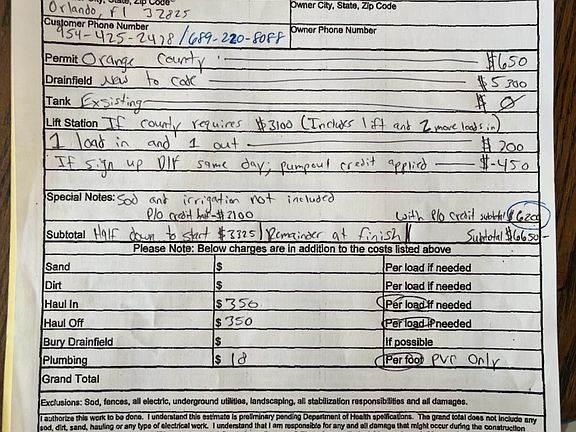 City, State, Zip Code
Orlando, Fl 32825
Owner City, State, Zip Code
Customer Phone Number
954-425-2478 / 689-220-8088
Owner Phone Number
Permit Orange County $650
Drainfield New to code $5300
Tank Exsisting $ 0
Lift Station If county requires $3100 (Includes lift and 2 more loads in)
1 load in and 1 out $200
If sign up DIF same day; pumpout credit applied $-450
Special Notes: Sod and irrigation not included
P/O credit $2100 with P/O credit subtotal $6200
Subtotal Half down to start $3325 | Remainder at finish Subtotal $6650-
Please Note: Below charges are in addition to the costs listed above
Sand $ Per load if needed
Dirt $ Per load if needed
Haul In $350 Per load if needed
Haul Off $350 Per load if needed
Bury Drainfield $ If possible
Plumbing $ 18 Per foot PVC Only
Grand Total
Exclusions: Sod, fences, all electric, underground utilities, landscaping, all stabilization responsibilities and all damages.
I authorize this work to be done. I understand this estimate is preliminary pending Department of Health spefications. The grand total does not include any
sod, dirt, sand, hauling or any type of electrical work. I understand that I am responsible for any and all damage that might occur during the construction